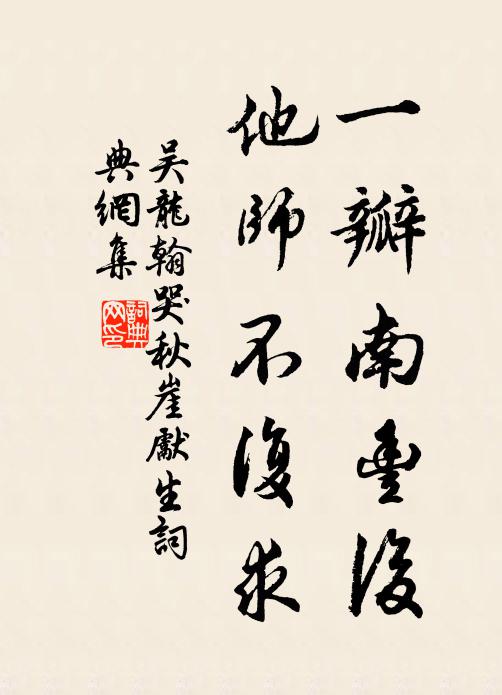 一瓣南豐後
他師不復求
吴龍翰哭秋崖獻生詞
典網集
詞典
网印